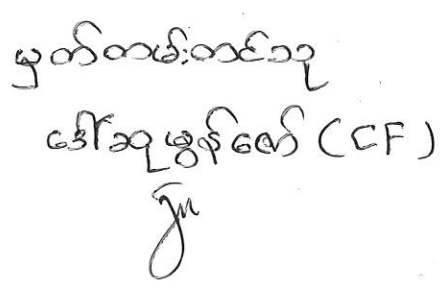 မှတ်တမ်းတင်သူ
ဒေါ်သူမွန်ဇော် (CF)